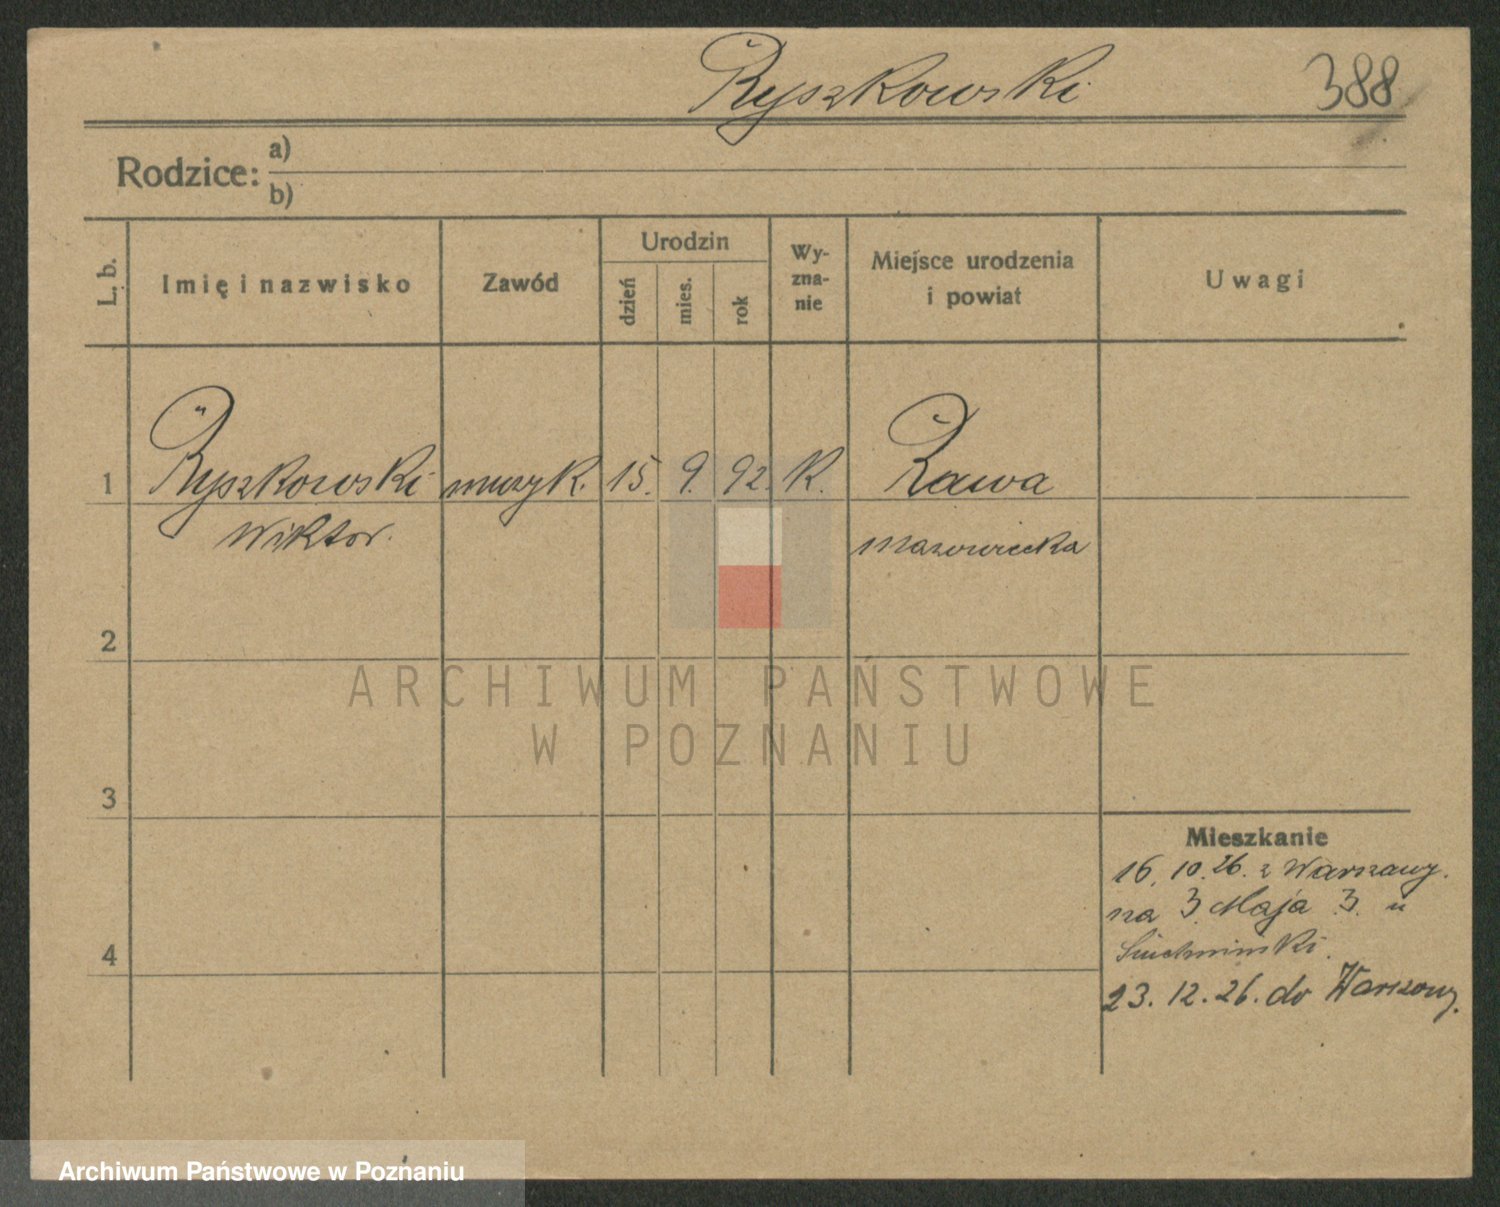 Ryszkowski
388
Rodzice: a)
b)
L. b.
Imię i nazwisko
Zawód
Urodzin
dzień
mies.
rok
Wy-
zna-
nie
Miejsce urodzenia
i powiat
Uwagi
1 Ryszkowski muzyk. 15. 9. 92. K. Rawa
Wiktor. mazowiecka
2
3
4
Mieszkanie
16. 10. 26. z Warszawy.
na 3 Maja 3. u
23. 12. 26. do Warszawy.
ARCHIWUM PAŃSTWOWE
W POZNANIU
Archiwum Państwowe w Poznaniu